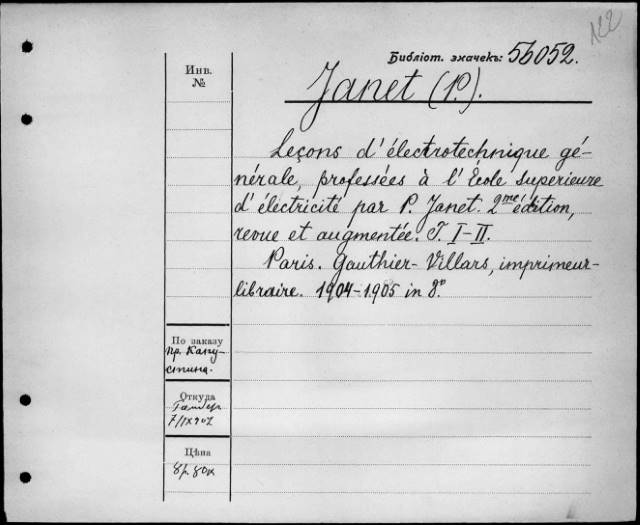 122
Библіот. значекъ: 56052.
Инв.
№
Janet (P.).
Leçons d'électrotechnique gé-
nérale, professées à l'École supérieure
d'électricité par P. Janet. 2me édition,
revue et augmentée. T. I-II.
Paris. Gauthier-Villars, imprimeur-
libraire. 1904-1905 in 8°.
По заказу
пр. Капу-
стина.
Откуда
7/IX 902
Цѣна
8р. 80к